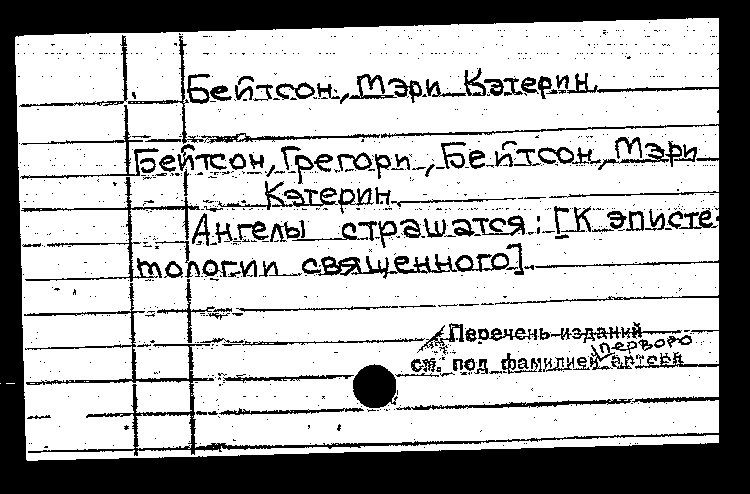 Бейтсон, Мэри Кэтерин.
Бейтсон, Грегори, Бейтсон, Мэри
Кэтерин.
Ангелы страшатся: [К эписте-
мологии священного].
Перечень изданий
первого
см. под фамилией автора